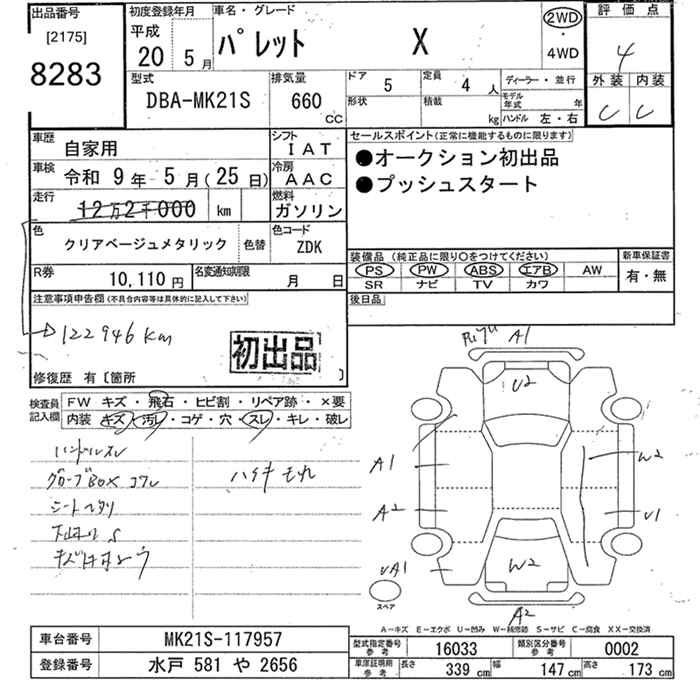 出品番号
[2175]
8283
初度登録年月
平成
20 5 月
車名・グレード
パレット X
2WD
・
4WD
評価点
4
外装 内装
C C
型式
DBA-MK21S
排気量
660
CC
ドア 5
形状
定員 4 人
積載 kg
ディーラー・並行
モデル年式 年
ハンドル 左・右
車歴 自家用
シフト IAT
車検 令和 9 年 5 月(25 日)
冷房 AAC
走行 12万2千000 km
燃料 ガソリン
色 クリアベージュメタリック 色替
色コード ZDK
R券 10,110 円
名変通知期限 月 日
セールスポイント(正常に機能するものに限ります)
●オークション初出品
●プッシュスタート
装備品 (純正品に限り○をつけてください)
PS PW ABS エアB AW
SR ナビ TV カワ
新車保証書
有・無
後日品
注意事項申告欄(不具合内容等は具体的に記入して下さい)
122946 km
初出品
修復歴 有〔箇所 〕
検査員記入欄
FW キズ・飛石・ヒビ割・リペア跡・×要
内装 キズ・汚レ・コゲ・穴・スレ・キレ・破レ
ハンドルスレ
グローブBOX コワレ
シートヘタリ
A1
U2
A1
A2
W2
U1
W2
UA1
A2
スペア
A－キズ E－エクボ U－凹み W－補修跡 S－サビ C－腐食 XX－交換済
車台番号 MK21S-117957
登録番号 水戸 581 や 2656
型式指定番号 参考 16033
類別区分番号 参考 0002
車庫証明用 参考 長さ 339 cm 幅 147 cm 高さ 173 cm